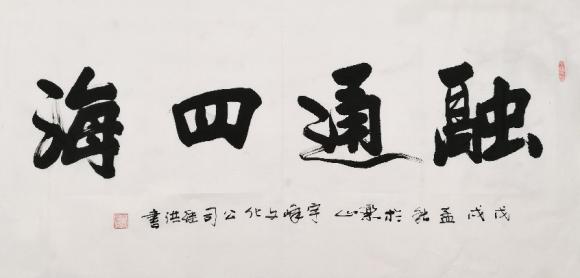 融通四海
戊戌孟秋於梁山宇峰文化公司洪書